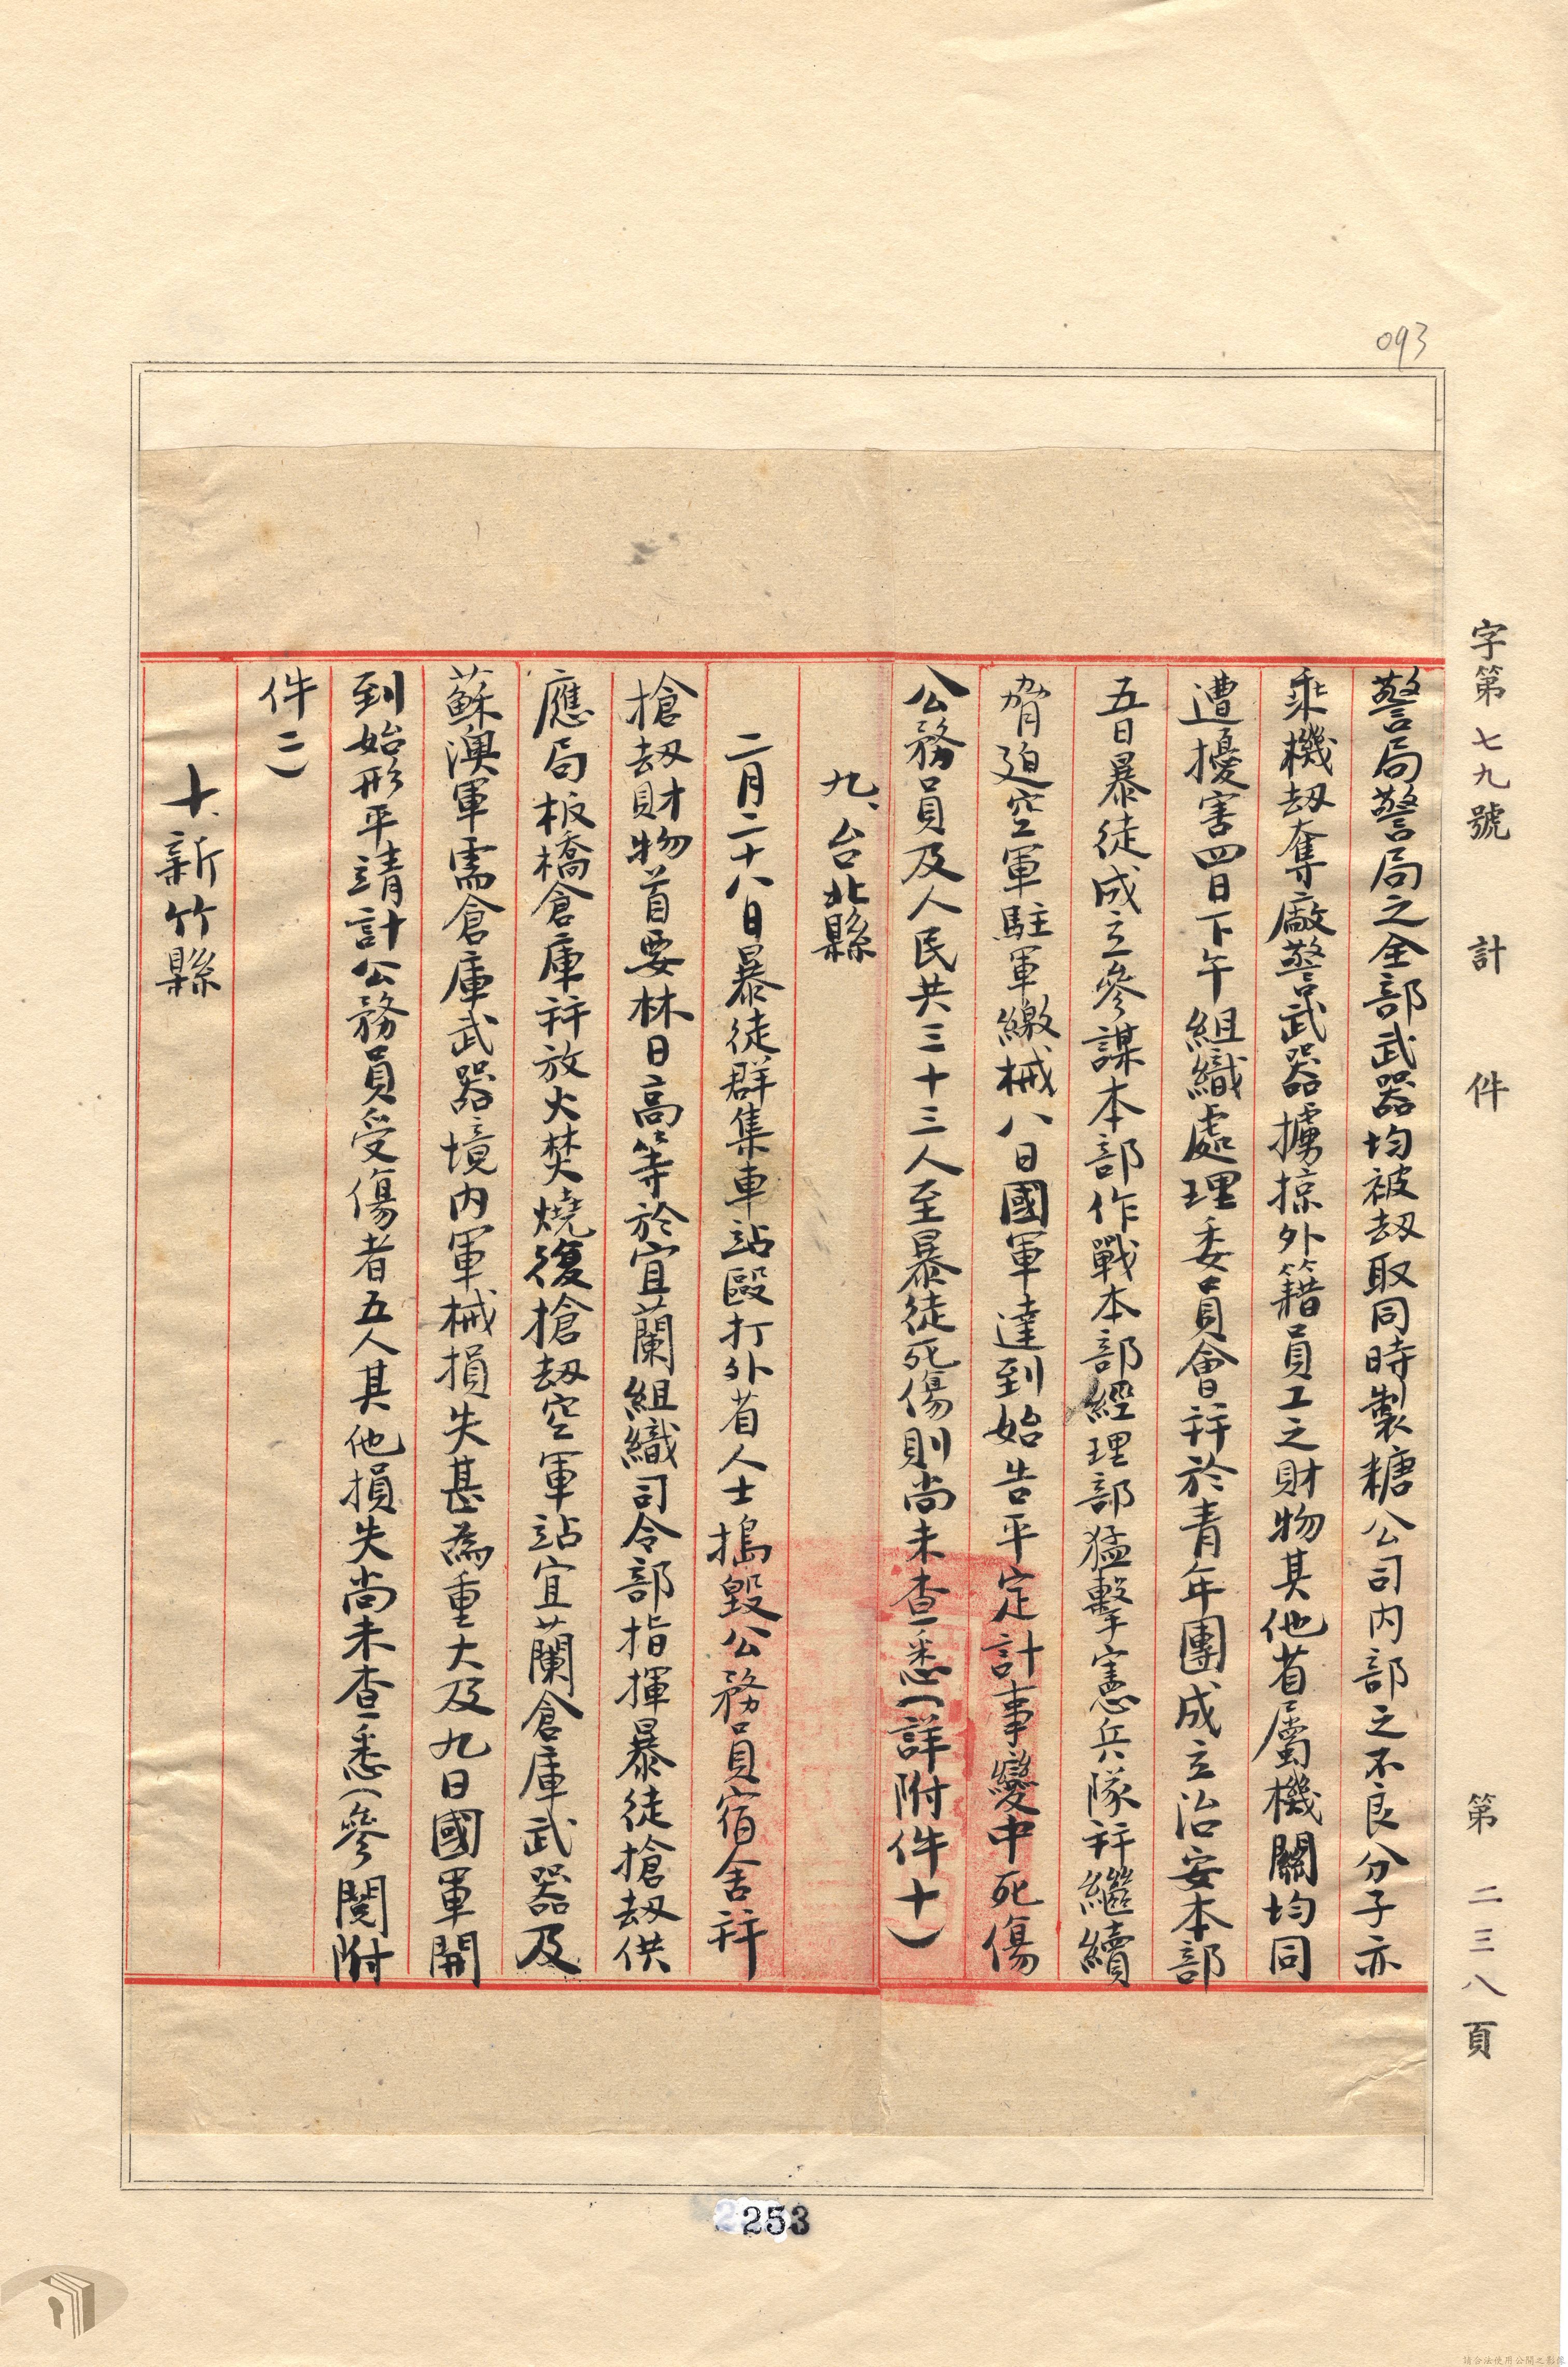 093
字第七九號 計 件 第二三八頁
警局警局之全部武器均被刧取同時製糖公司內部之不良分子亦
乘機刧奪廠警武器擄掠外籍員工之財物其他省屬機關均同
遭擾害四日下午組織處理委員會并於青年團成立治安本部
五日暴徒成立參謀本部作戰本部經理部猛擊憲兵隊并繼續
脅迫空軍駐軍繳械八日國軍達到始告平定計事變中死傷
公務員及人民共三十三人至暴徒死傷則尚未查悉(詳附件十)
九、台北縣
二月二十八日暴徒群集車站毆打外省人士搗毀公務員宿舍并
搶刧財物首要林日高等於宜蘭組織司令部指揮暴徒搶刧供
應局板橋倉庫并放火焚燒復搶刧空軍站宜蘭倉庫武器及
蘇澳軍需倉庫武器境內軍械損失甚為重大及九日國軍開
到始形平靖計公務員受傷者五人其他損失尚未查悉(參閱附
件二)
十、新竹縣
253
請合法使用公開之影像